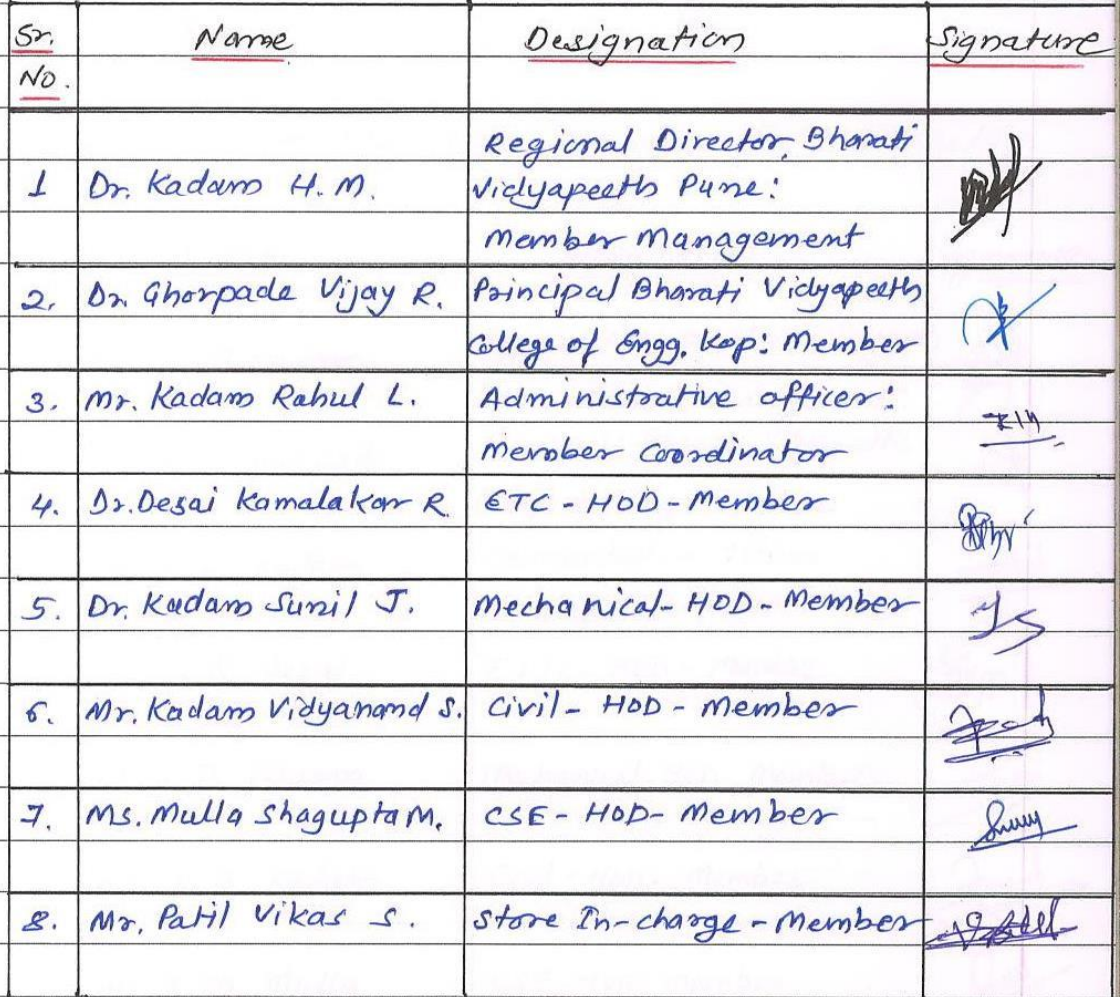 Sr. Name Designation Signature
No.
Regional Director, Bharati
1 Dr. Kadam H. M. Vidyapeeth Pune:
Member Management
2. Dr. Ghorpade Vijay R. Principal Bharati Vidyapeeth
College of Engg. Kop: Member
3. Mr. Kadam Rahul L. Administrative officer:
Member Coordinator
4. Dr. Desai Kamalakar R. ETC - HOD - Member
5. Dr. Kadam Sunil J. Mechanical - HOD - Member
6. Mr. Kadam Vidyanand S. Civil - HOD - Member
7. Ms. Mulla Shagupta M. CSE - HOD - Member
8. Mr. Patil Vikas S. Store In-charge - Member